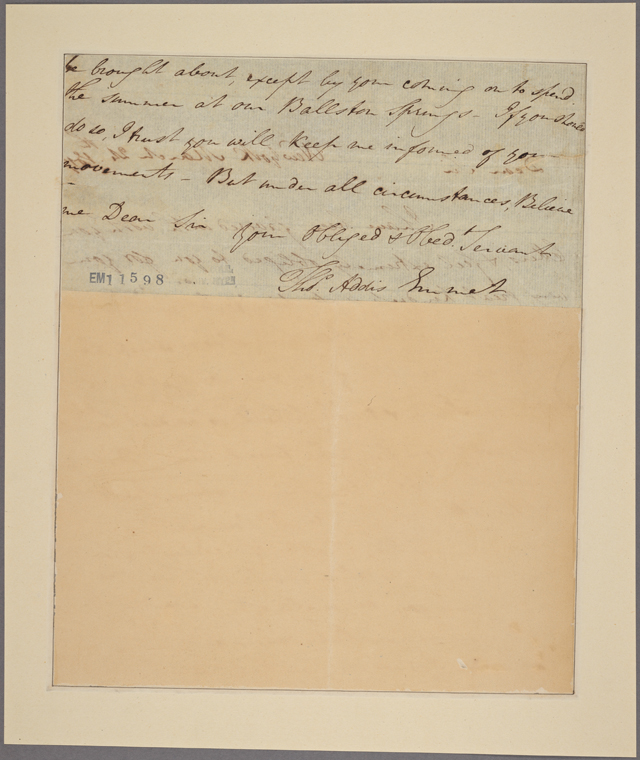 be brought about, except by your coming on to spend
the summer at our Ballston Springs - If you should
do so, I trust you will keep me informed of your
movements - But under all circumstances, Believe
me Dear Sir
your obliged & Obed.t Servant
Tho.s Addis Emmet
EM11598